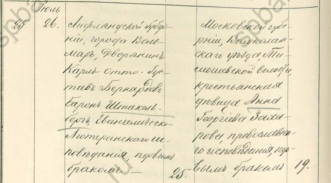 Іюль
26.
Лифляндской губер-
ніи, города Воль-
мар, Дворянинъ
Карлъ Отто-Гу-
ставъ Бернгардъ
баронъ Штакель-
бергъ, Евангелическо-
Лютеранскаго ис-
повѣданія, первымъ
бракомъ
25.
Московской губер-
ніи,
скаго уѣзда,
волости,
крестьянская
дѣвица Анна
Георгіева Заха-
рова, православна-
го исповѣданія, пер-
вымъ бракомъ
19.